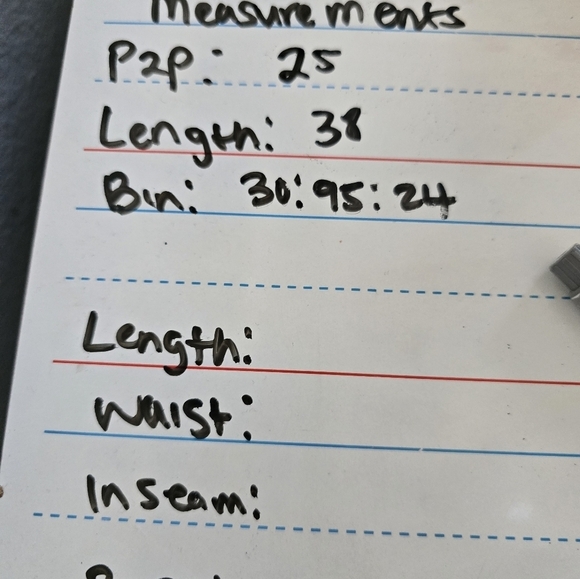 Measurements
P2P: 25
Length: 38
Bin: 30:95:24
Length:
Waist:
Inseam: